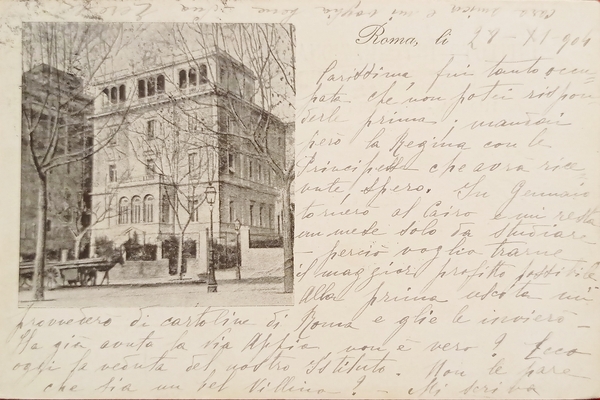 Roma, li 28-XI 904
Carissima, fui tanto occu=
pata che non potei rispon
derle prima; mandai
però la Regina con le
Principesse che avrà rice=
vute, spero. In Gennaio
tornerò al Cairo e mi resta
un mese solo da studiare
perciò voglio trarne
il maggior profitto possibile
Alla prima uscita mi
provvederò di cartoline di Roma e glie le invierò—
Ha già avuta la via Appia non è vero? Ecco
oggi la veduta del nostro Istituto. Non le pare
che sia un bel Villino? — Mi scriva
cara amica e mi voglia bene